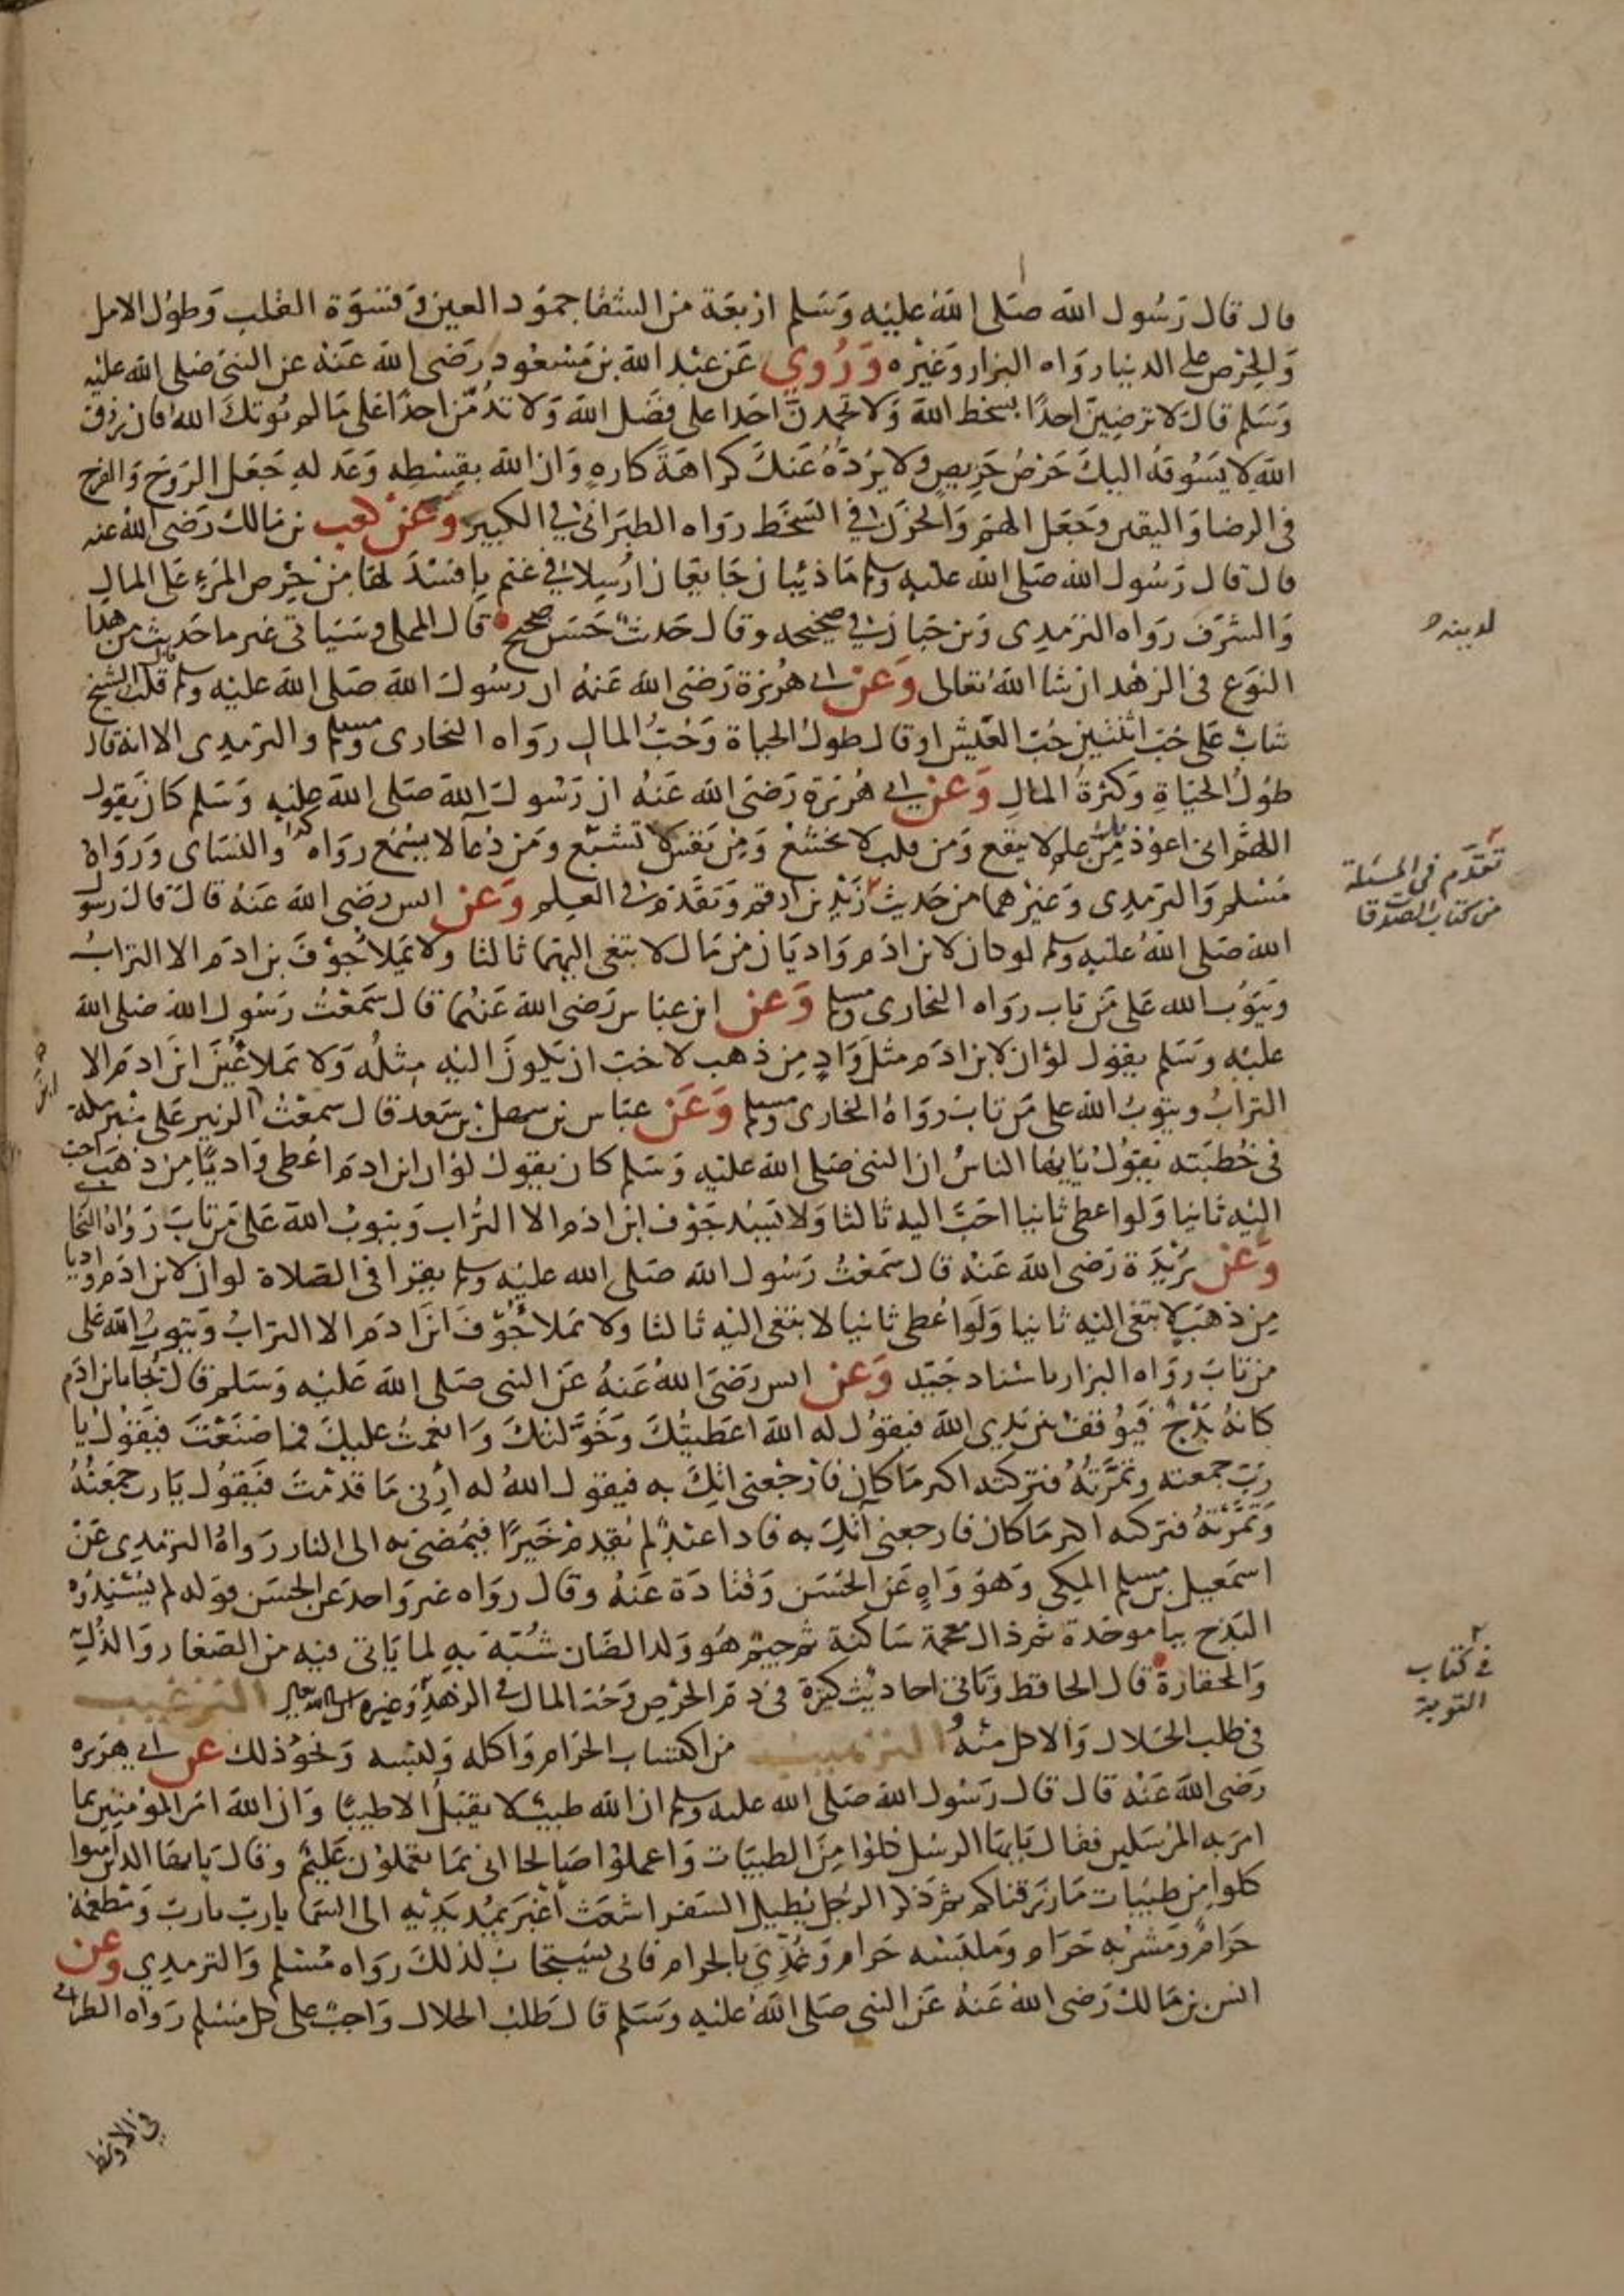 قال قال رسول الله صلى الله عليه وسلم اربعة من الشقا جمود العين وقسوة القلب وطول الامل
والحرص على الدنيا رواه البزار وغيره وروي عن عبد الله بن مسعود رضى الله عنه عن النبى صلى الله عليه
وسلم قال لا ترضين احدا بسخط الله ولا تحمدن احدا على فضل الله ولا تذمن احدا على ما لم يؤتك الله فان رزق
الله لا يسوقه اليك حرص حريص ولا يرده عنك كراهة كاره وان الله بقسطه وعدله جعل الروح والفرح
فى الرضا واليقين وجعل الهم والحزن فى السخط رواه الطبرانى فى الكبير وعن كعب بن مالك رضى الله عنه
قال قال رسول الله صلى الله عليه وسلم ما ذئبان جايعان ارسلا فى غنم بافسد لها من حرص المرء على المال
والشرف رواه الترمذى وبن حبان فى صحيحه وقال حديث حسن صحيح قال المملى وسياتى غير ما حديث من هذا
النوع فى الزهد ان شا الله تعالى وعن ابى هريرة رضى الله عنه ان رسول الله صلى الله عليه وسلم قال قلب الشيخ
شاب على حب اثنتين حب العيش او قال طول الحياة وحب المال رواه البخارى ومسلم والترمذى الا انه قال
طول الحياة وكثرة المال وعن ابى هريرة رضى الله عنه ان رسول الله صلى الله عليه وسلم كان يقول
اللهم انى اعوذ بك من علم لا ينفع ومن قلب لا يخشع ومن نفس لا تشبع ومن دعا لا يسمع رواه والنساى ورواه
مسلم والترمذى وغيرهما من حديث زيد بن ارقم وتقدم فى العلم وعن انس رضى الله عنه قال قال رسول
الله صلى الله عليه وسلم لو كان لابن ادم واديان من مال لابتغى اليهما ثالثا ولا يملا جوف بن ادم الا التراب
ويتوب الله على من تاب رواه البخارى ومسلم وعن ابن عباس رضى الله عنهما قال سمعت رسول الله صلى الله
عليه وسلم يقول لو ان لابن ادم مثل واد من ذهب لاحب ان يكون اليه مثله ولا يملا عين ابن ادم الا
التراب ويتوب الله على من تاب رواه البخارى ومسلم وعن عباس بن سهل بن سعد قال سمعت ابن الزبير على منبر مكة
فى خطبته يقول يا ايها الناس ان النبى صلى الله عليه وسلم كان يقول لو ان ابن ادم اعطى واديا من ذهب احب
اليه ثانيا ولو اعطى ثانيا احب اليه ثالثا ولا يسد جوف ابن ادم الا التراب ويتوب الله على من تاب رواه البخا
وعن بريدة رضى الله عنه قال سمعت رسول الله صلى الله عليه وسلم يقرا فى الصلاة لو ان لابن ادم واديا
من ذهب لابتغى اليه ثانيا ولو اعطى ثانيا لابتغى اليه ثالثا ولا يملا جوف ابن ادم الا التراب ويتوب الله على
من تاب رواه البزار باسناد جيد وعن انس رضى الله عنه عن النبى صلى الله عليه وسلم قال يجا بابن ادم
كانه بذج فيوقف بين يدي الله فيقول له الله اعطيتك وخولتك وانعمت عليك فما صنعت فيقول يا
رب جمعته وثمرته فتركته اكثر ما كان فارجعنى اتك به فيقول الله له ارنى ما قدمت فيقول يا رب جمعته
وثمرته فتركته اكثر ما كان فارجعنى اتك به فاذا عبد لم يقدم خيرا فيمضى به الى النار رواه الترمذى عن
اسمعيل بن مسلم المكى وهو واه عن الحسن وقتادة عنه وقال رواه غير واحد عن الحسن قوله لم يسندوه
البذج ببا موحدة ثم ذال معجمة ساكنة ثم جيم هو ولد الضان شبه به لما ياتى فيه من الصغار والذل
والحقارة قال الحافظ وتاتى احاديث كثيرة فى ذم الحرص وحب المال فى الزهد وغيره ان شا الله تعالى الترغيب
فى طلب الحلال والاكل منه الترهيب من اكتساب الحرام واكله ولبسه ونحو ذلك عن ابى هريرة
رضى الله عنه قال قال رسول الله صلى الله عليه وسلم ان الله طيب لا يقبل الا طيبا وان الله امر المؤمنين بما
امر به المرسلين فقال يا ايها الرسل كلوا من الطيبات واعملوا صالحا انى بما تعملون عليم وقال يا ايها الذين امنوا
كلوا من طيبات ما رزقناكم ثم ذكر الرجل يطيل السفر اشعث اغبر يمد يديه الى السما يا رب يا رب ومطعمه
حرام ومشربه حرام وملبسه حرام وغذي بالحرام فانى يستجاب لذلك رواه مسلم والترمذي وعن
انس بن مالك رضى الله عنه عن النبى صلى الله عليه وسلم قال طلب الحلال واجب على كل مسلم رواه الطبرانى
فى الاوسط
لدينه
تقدم فى المسئلة
من كتاب الصدقا
فى كتاب
التوبة